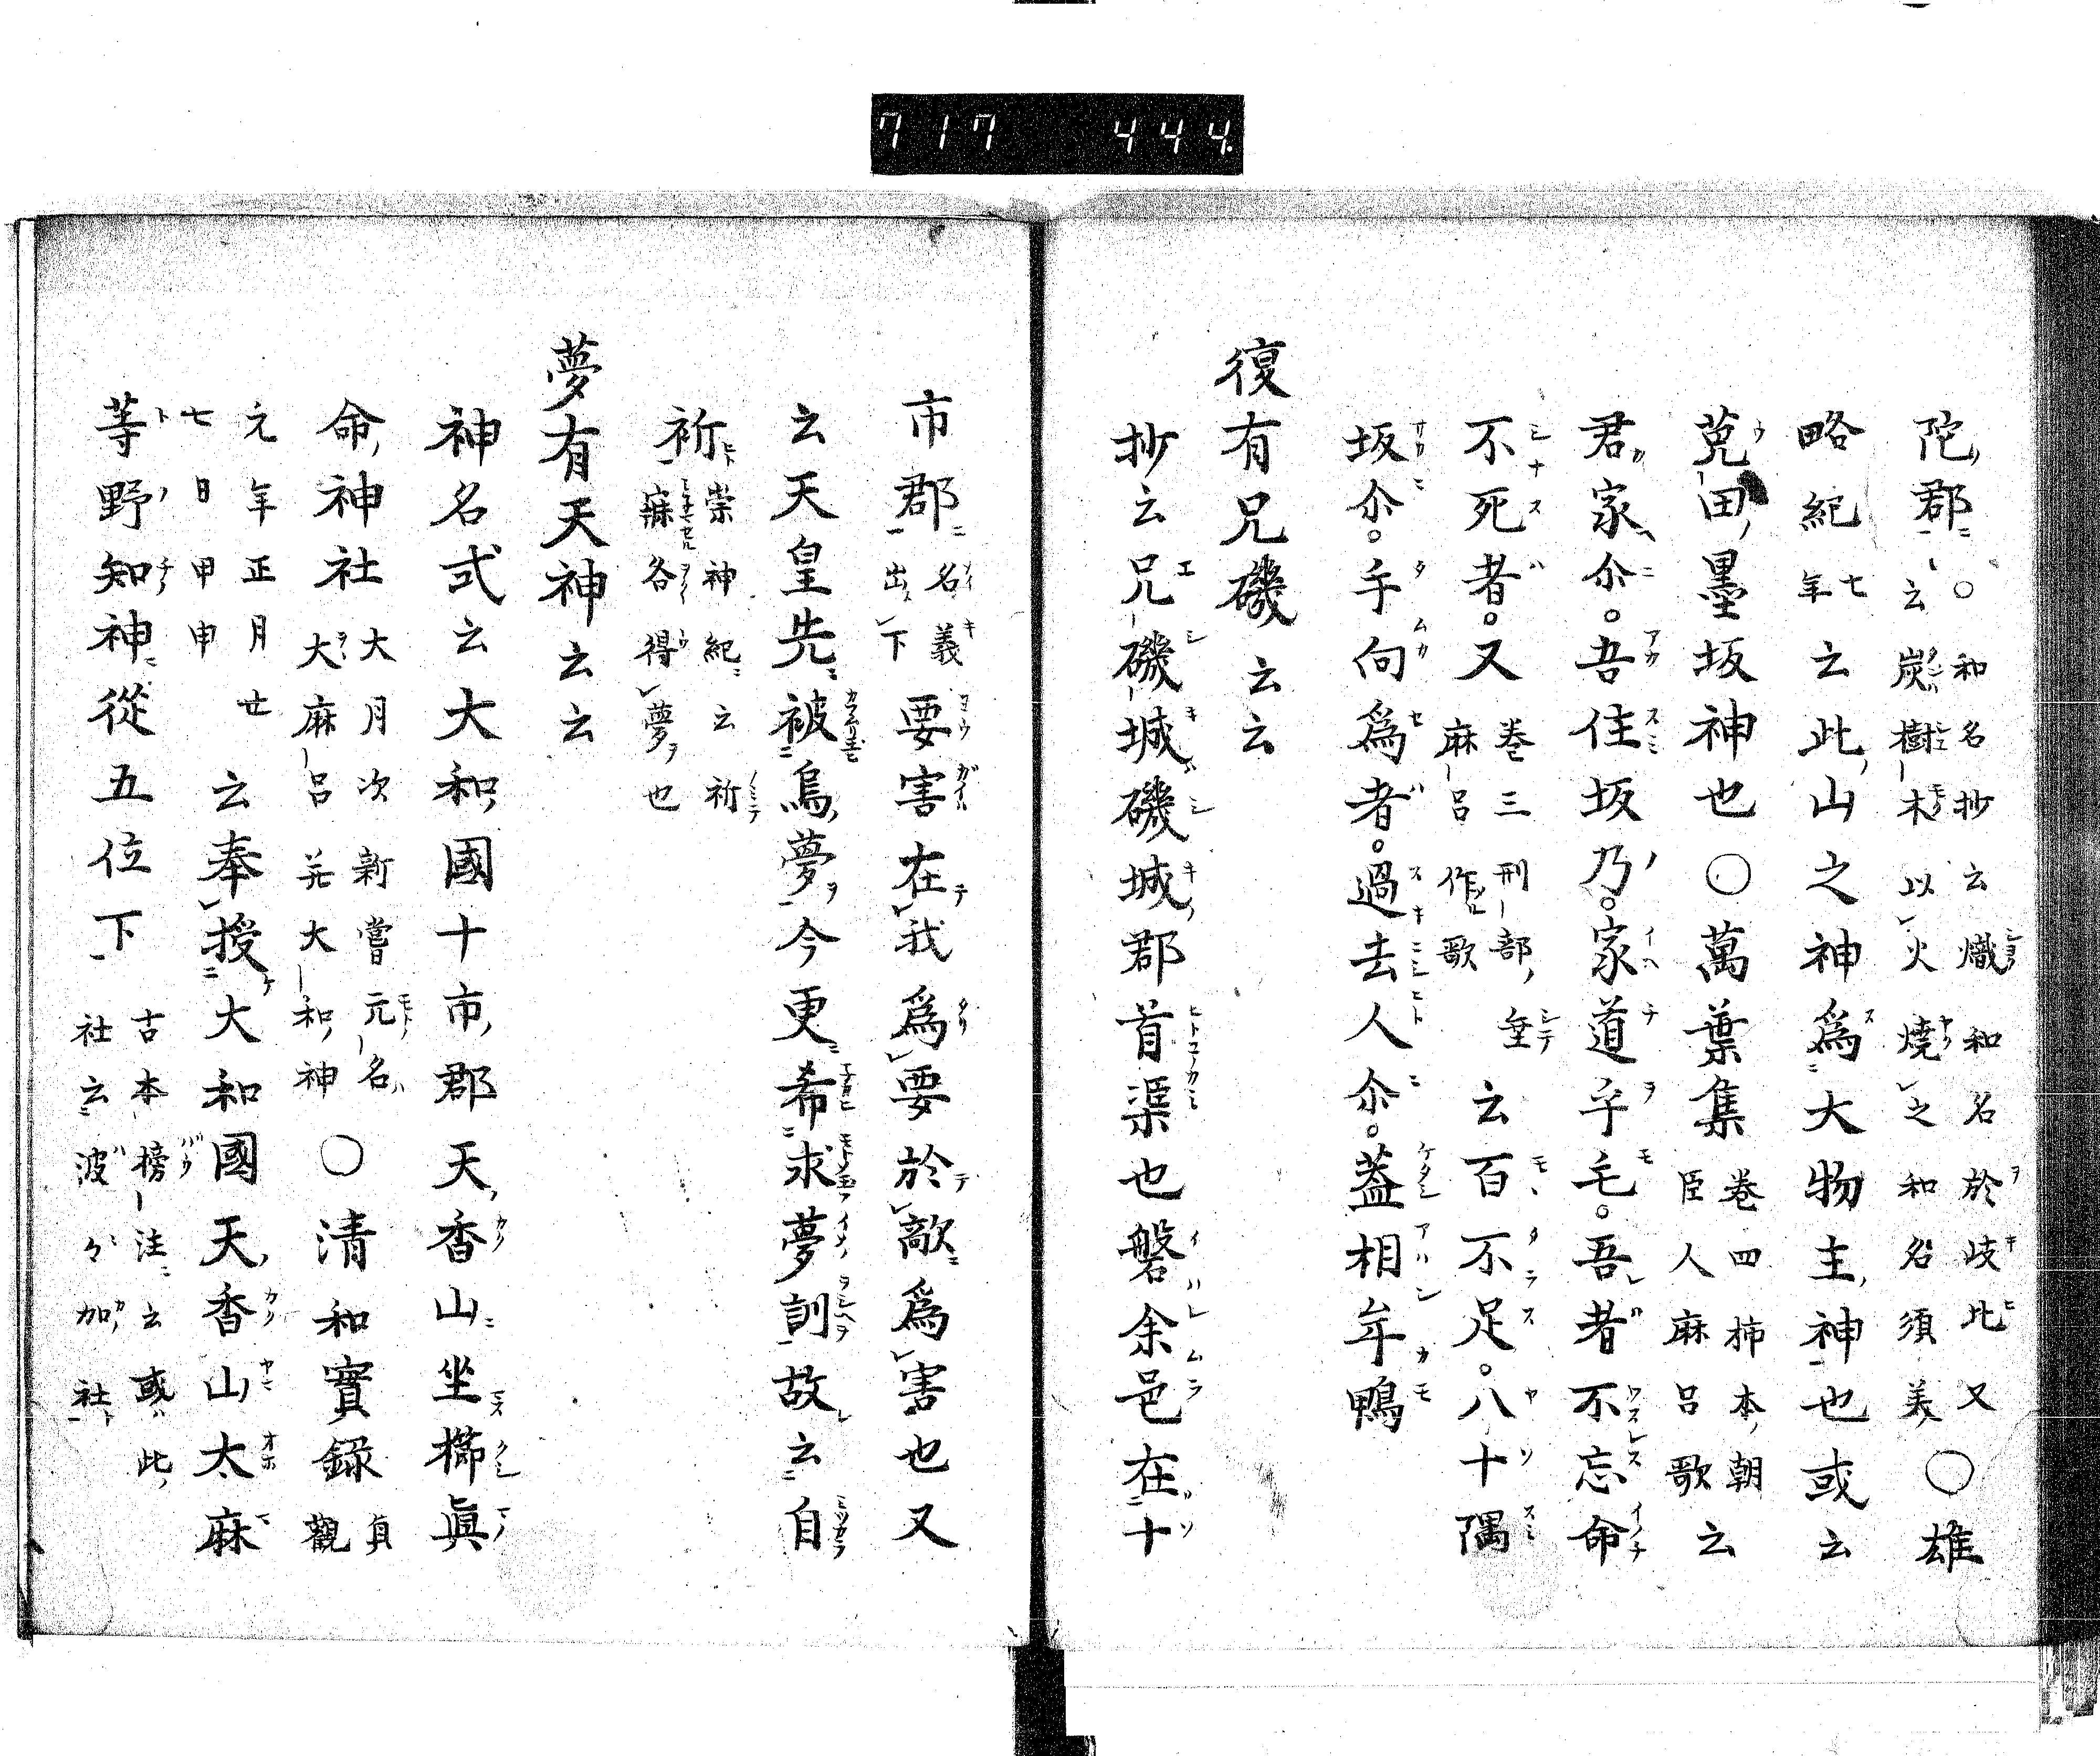 717 444.
陀郡〇和名抄云熾和名於歧比又云炭樹木以火燒之和名須美〇雄
略紀七年云此山之神爲大物主神也或云
菟田墨坂神也〇萬葉集卷四柿本朝臣人麻呂歌云
君家尒。吾住坂乃。家道乎毛。吾者不忘命
不死者。又卷三刑部垂麻呂作歌云百不足。八十隅
坂尒。手向爲者。過去人尒。蓋相牟鴨
復有兄磯云云
抄云兄磯城磯城郡首渠也磐余邑在十
市郡名義出下要害在我爲要於敵爲害也又
云天皇先被爲夢今更希求夢訓故云自
祈崇神紀云祈寐各得夢也
夢有天神云云
神名式云大和國十市郡天香山坐櫛眞
命神社大月次新嘗元名大麻呂并大和神〇清和實錄貞觀
元年正月廿七日甲申云奉授大和國天香山太麻
等野知神從五位下古本榜注云或此社云波々加社